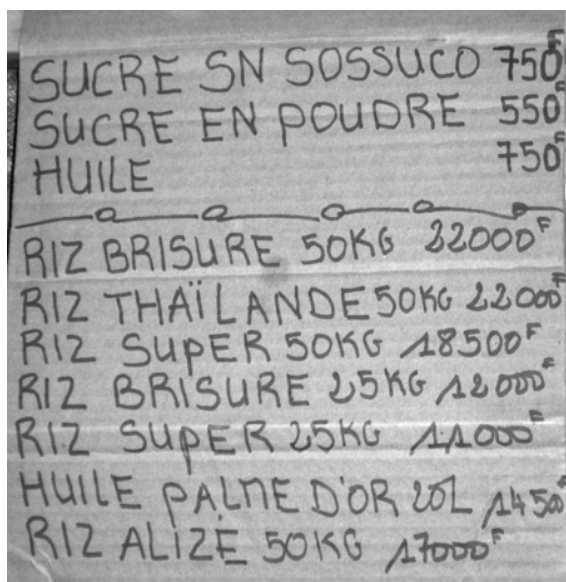 SUCRE SN SOSSUCO 750F
SUCRE EN POUDRE 550F
HUILE 750F
RIZ BRISURE 50KG 22000F
RIZ THAÏLANDE 50KG 22000F
RIZ SUPER 50KG 18500F
RIZ BRISURE 25KG 12000F
RIZ SUPER 25KG 11000F
HUILE PALME D'OR 20L 1450F
RIZ ALIZÉ 50KG 17000F